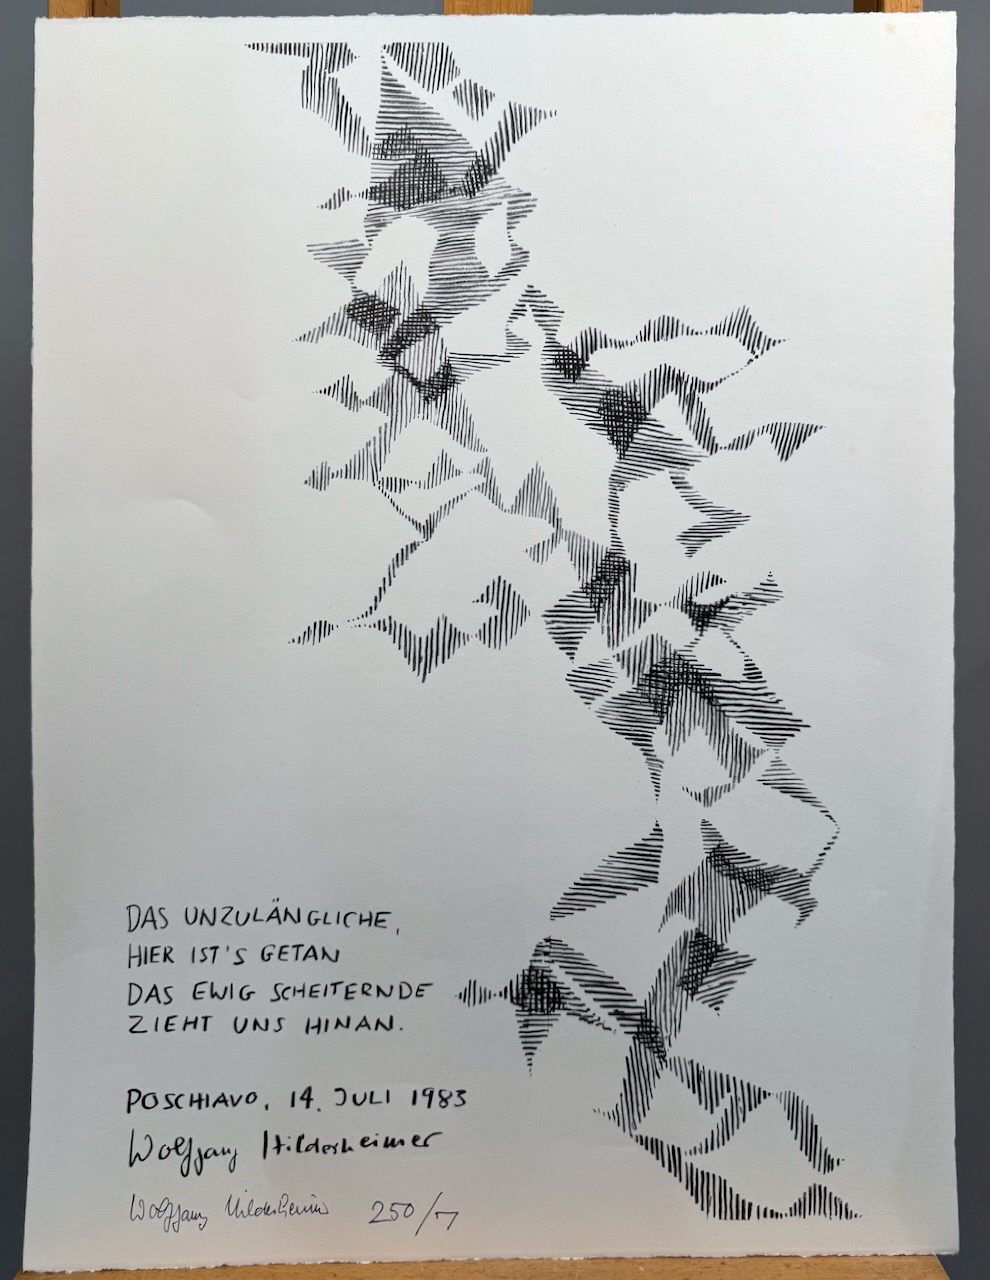 DAS UNZULÄNGLICHE,
HIER IST'S GETAN
DAS EWIG SCHEITERNDE
ZIEHT UNS HINAN.
POSCHIAVO, 14. JULI 1983
Wolfgang Hildesheimer
Wolfgang Hildesheimer 250/7